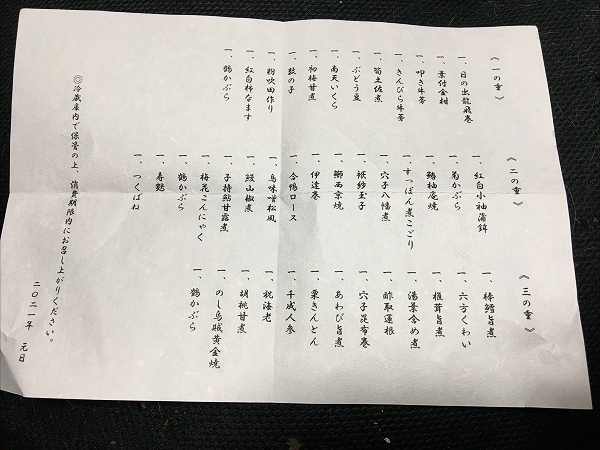 《一の重》
一、日の出龍飛巻
一、葉付金柑
一、叩き牛蒡
一、きんぴら牛蒡
一、筍土佐煮
一、ぶどう豆
一、南天いくら
一、初梅甘煮
一、数の子
一、粉吹田作り
一、紅白柿なます
一、鶴かぶら
《二の重》
一、紅白小袖蒲鉾
一、菊かぶら
一、鰆柚庵焼
一、すっぽん煮こごり
一、穴子八幡煮
一、袱紗玉子
一、鰤西京焼
一、伊達巻
一、合鴨ロース
一、鳥味噌松風
一、鰻山椒煮
一、子持鮎甘露煮
一、梅花こんにゃく
一、鶴かぶら
一、寿麩
一、つくばね
《三の重》
一、棒鱈旨煮
一、六方くわい
一、椎茸旨煮
一、湯葉含め煮
一、酢取蓮根
一、穴子昆布巻
一、あわび旨煮
一、栗きんとん
一、千成人参
一、祝海老
一、胡桃甘煮
一、のし烏賊黄金焼
一、鶴かぶら
◎冷蔵庫内で保管の上、消費期限内にお召し上がりください。
二〇二一年 元日